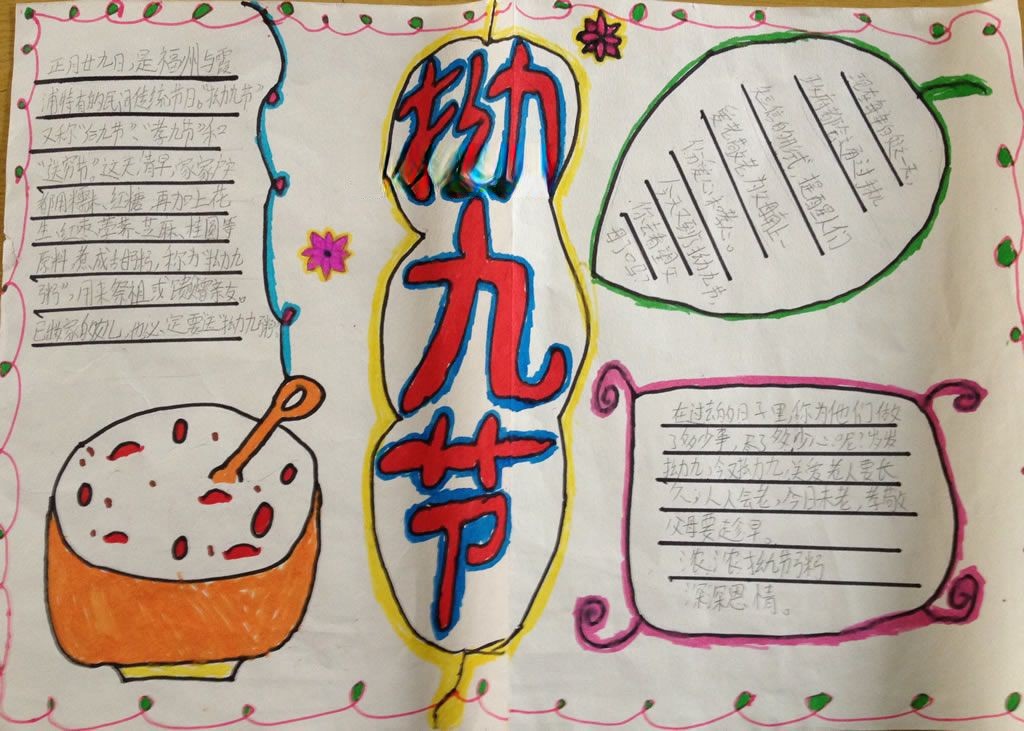 拗九节
正月廿九日，是福州与霞
浦特有的民间传统节日“拗九节”
又称“后九节”、“孝九节”和
“送穷节。”这天清早，家家户户
都用糯米、红糖，再加上花
生、红枣、荸荠、芝麻、桂圆等
原料煮成甜粥，称为“拗九
粥”，用来祭祖或馈赠亲友。
已嫁家的女儿，也必一定要送“拗九粥
现在每年的这一天，
政府都会通过拗
短信的形式，提醒人们
爱老敬老，为父母献上一
份爱心和孝心。
今天又到拗九节，
你去看望父
母了吗？
在过去的日子里，你为他们做
了多少事，尽了多少心呢？岁岁
拗九，今又拗九，关爱老人要长
久，人人会老，今日未老，孝敬
父母要趁早。
浓浓拗九节粥
深深恩情。